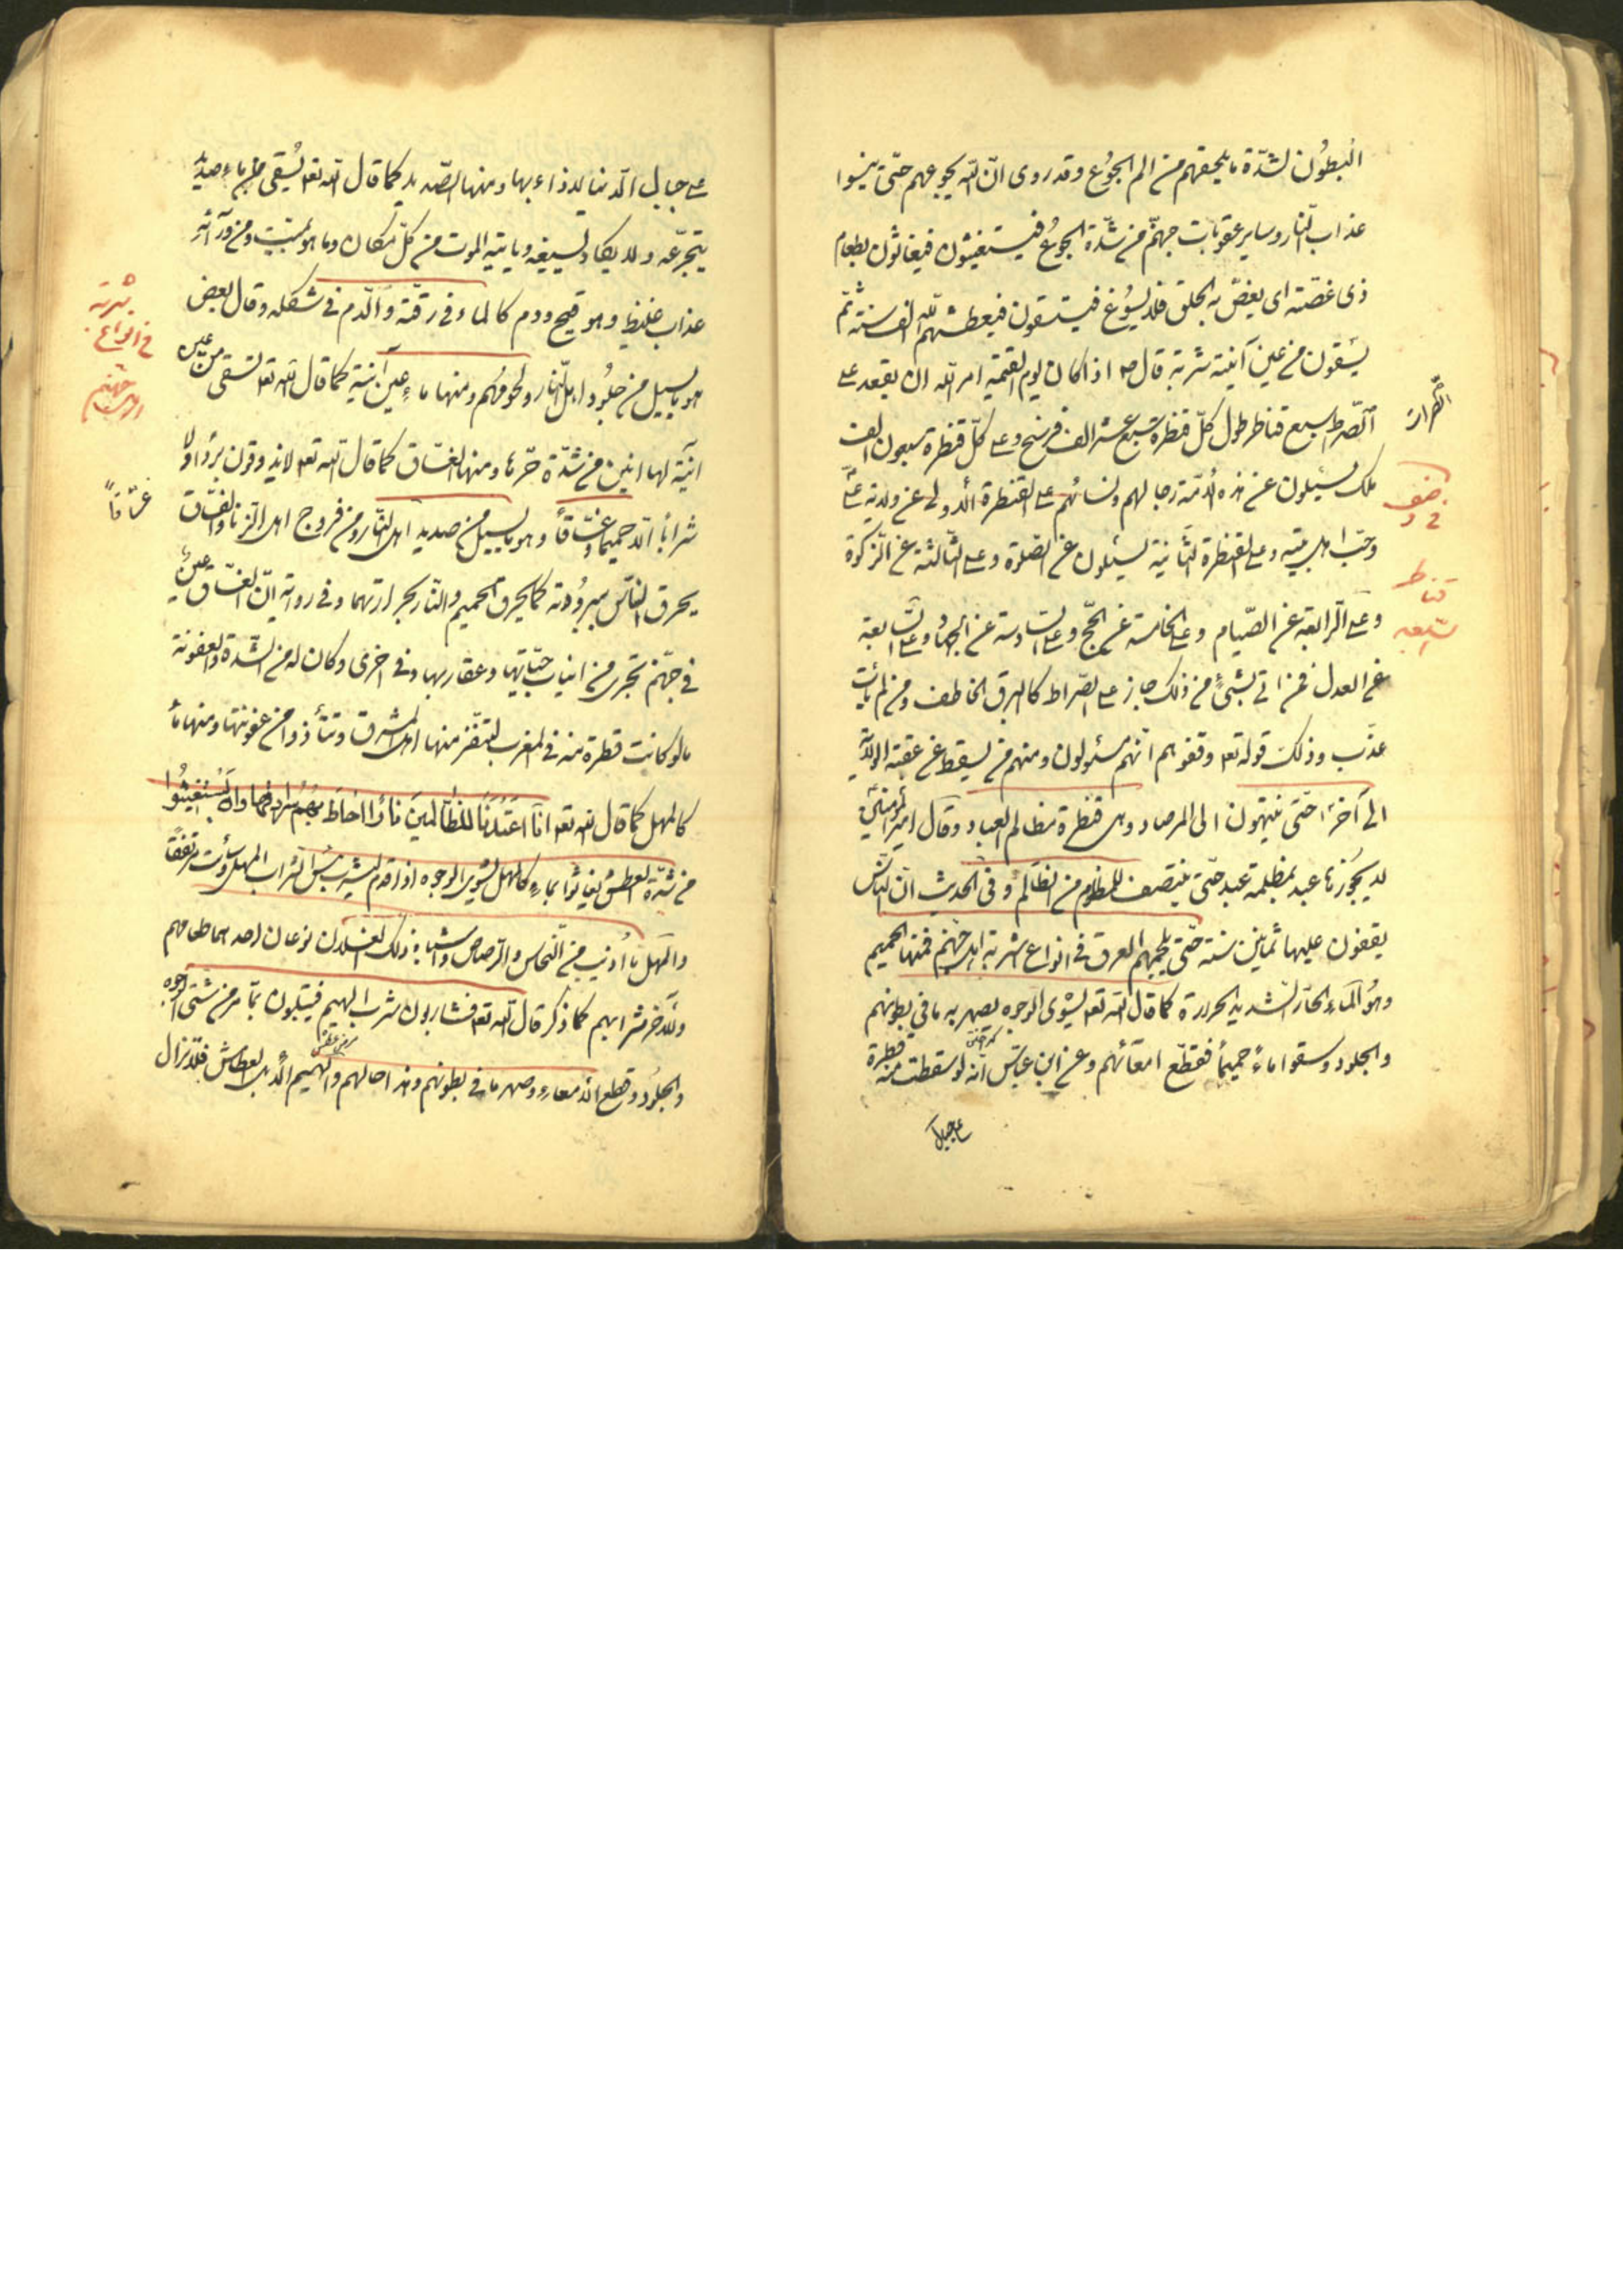 البطون لشدّة ما يلحقهم من الم الجوع وقد روى انّ الله يجوعهم حتّى ينسوا
عذاب النّار وساير عقوبات جهنّم من شدّة الجوع فيستغيثون فيغاثون بطعام
ذى غصّة اى يغصّ به الحلق فلا يسوغ فيستسقون فيعطشهم الله الف سنة ثمّ
يسقون من عين آنية شربة قال ص اذا كان يوم القيمة امر الله ان يقعد على
الصّراط سبع قناطر طول كلّ قنطرة سبع عشر الف فرسخ وعلى كلّ قنطرة سبعون الف
ملك يسئلون عن هذه الامّة رجالهم ونسائهم على القنطرة الاولى عن ولاية علىّ
وحبّ اهل بيته وعلى القنطرة الثّانية يسئلون عن الصّلوة وعلى الثّالثة عن الزّكوة
وعلى الرّابعة عن الصّيام وعلى الخامسة عن الحجّ وعلى السّادسة عن الجهاد وعلى السّابعة
عن العدل فمن اتى بشىء من ذلك جاز على الصّراط كالبرق الخاطف ومن لم يأت
عذّب وذلك قوله تعه وقفوهم انّهم مسئولون ومنهم من يسقط عن عقبة الولاية
الى آخرها حتّى ينتهون الى المرصاد وهى قنطرة مظالم العباد وقال امير المؤمنين
لا يجوزها عبد بمظلمة عبد حتّى ينتصف للمظلوم من الظالم وفى الحديث انّ النّاس
يقفون عليها ثمانين سنة حتّى يلجمهم العرق فى انواع اشربة اهل جهنّم فمنها الحميم
وهو الماء الحارّ الشديد الحرارة كما قال الله تعه يشوى الوجوه يصهر به ما فى بطونهم
والجلود وسقوا ماءً حميماً فقطّع امعائهم وعن ابن عبّاس انه لو سقطت منه قطرة
على جبال
الصراط
فى وصف
قناطر
السّبعة
على جبال الدّنيا لاذاءبها ومنها الصّديد كما قال الله تعه يُسقى من ماءٍ صديدٍ
يتجرّعه ولا يكاد يسيغه وياتيه الموت من كلّ مكان وما هو بميّت ومن ورآئه
عذاب غليظ وهو قيح ودم كالماء فى رقّته والدّم فى شكله وقال بعض
هو ما يسيل من جلود اهل النّار ولحومهم ومنها ماء عين آنية كما قال الله تعه تسقى من عين
انية لها انين من شدّة حرّها ومنها الغسّاق كما قال الله تعه لا يذوقون برداً ولا
شراباً الّا حميماً وغسّاقاً وهو ما يسيل من صديد اهل النّار ومن فروج اهل الزنا والغسّاق
يحرق النّاس ببرودته كما يحرق الحميم والنّار بحرارتهما وفى رواية انّ الغسّاق عين
فى جهنّم تجرى من انياب حيّاتها وعقاربها وفى اخرى وكان له من الشّدة والعفونة
ما لو كانت قطرة منه فى المغرب لتنفّر منها اهل المشرق وتتأذوا من عفونتها ومنها ماء
كالمهل كما قال الله تعه انّا اعتدنا للظّالمين ناراً احاط بهم سرادقها وان يستغيثوا
من شدّة العطش يغاثوا بماءٍ كالمهل يشوى الوجوه اذا قدم ليشرب بئس الشّراب المهل وسائت مرتفقاً
والمهل ما أذيب من النّحاس والرّصاص واشباه ذلك لعذابان نوعان احدهما طعامهم
والآخر شرابهم كما ذكر قال الله تعه فشاربون شرب الهيم فيبتلون بما مرّ من شىّ الوجوه
والجلود وقطع الامعاء وصهر ما فى بطونهم وهذا حالهم والهيم الابل العطاش فلا تزال
شربة
فى انواع
اهل جهنم
غسّاقاً